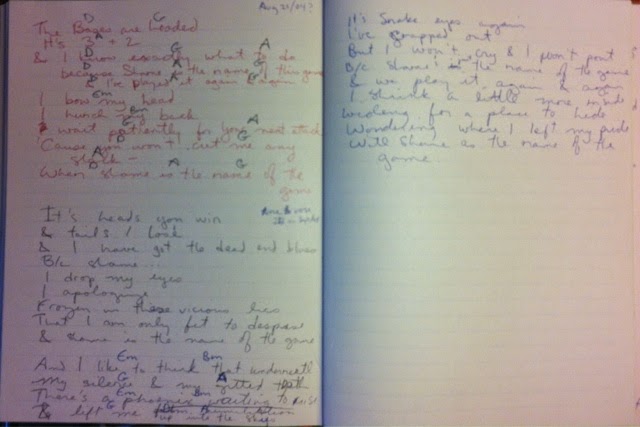 Aug 31/04?
D G
The Bases are loaded
A
It's 3 + 2
D G A
& I know exactly what to do
D A G
because Shame is the name of this game
& I've played it again & again
Em
I bow my head
I hunch my back
I wait patiently for your next attack
D
'Cause you won't cut me any
A
slack –
D A G
When shame is the name of the
game
It's heads you win
& tails I lose
& I have got the dead end blues
B/c shame...
I drop my eyes
I apologize
Frozen in these vicious lies
That I am only fit to despise
& shame is the name of the game
Em Bm
And I like to think that underneath
G A
my silence & my gritted teeth
Em Bm
There's a phoenix waiting to rise
G
& left me
up into the skies
It's Snake eyes again
I've crapped out
But I won't cry & I won't pout
B/c Shame is the name of the game
& we play it again & again
I shrink a little more inside
Wondering for a place to hide
Wondering where I left my pride
With Shame as the name of the
game...